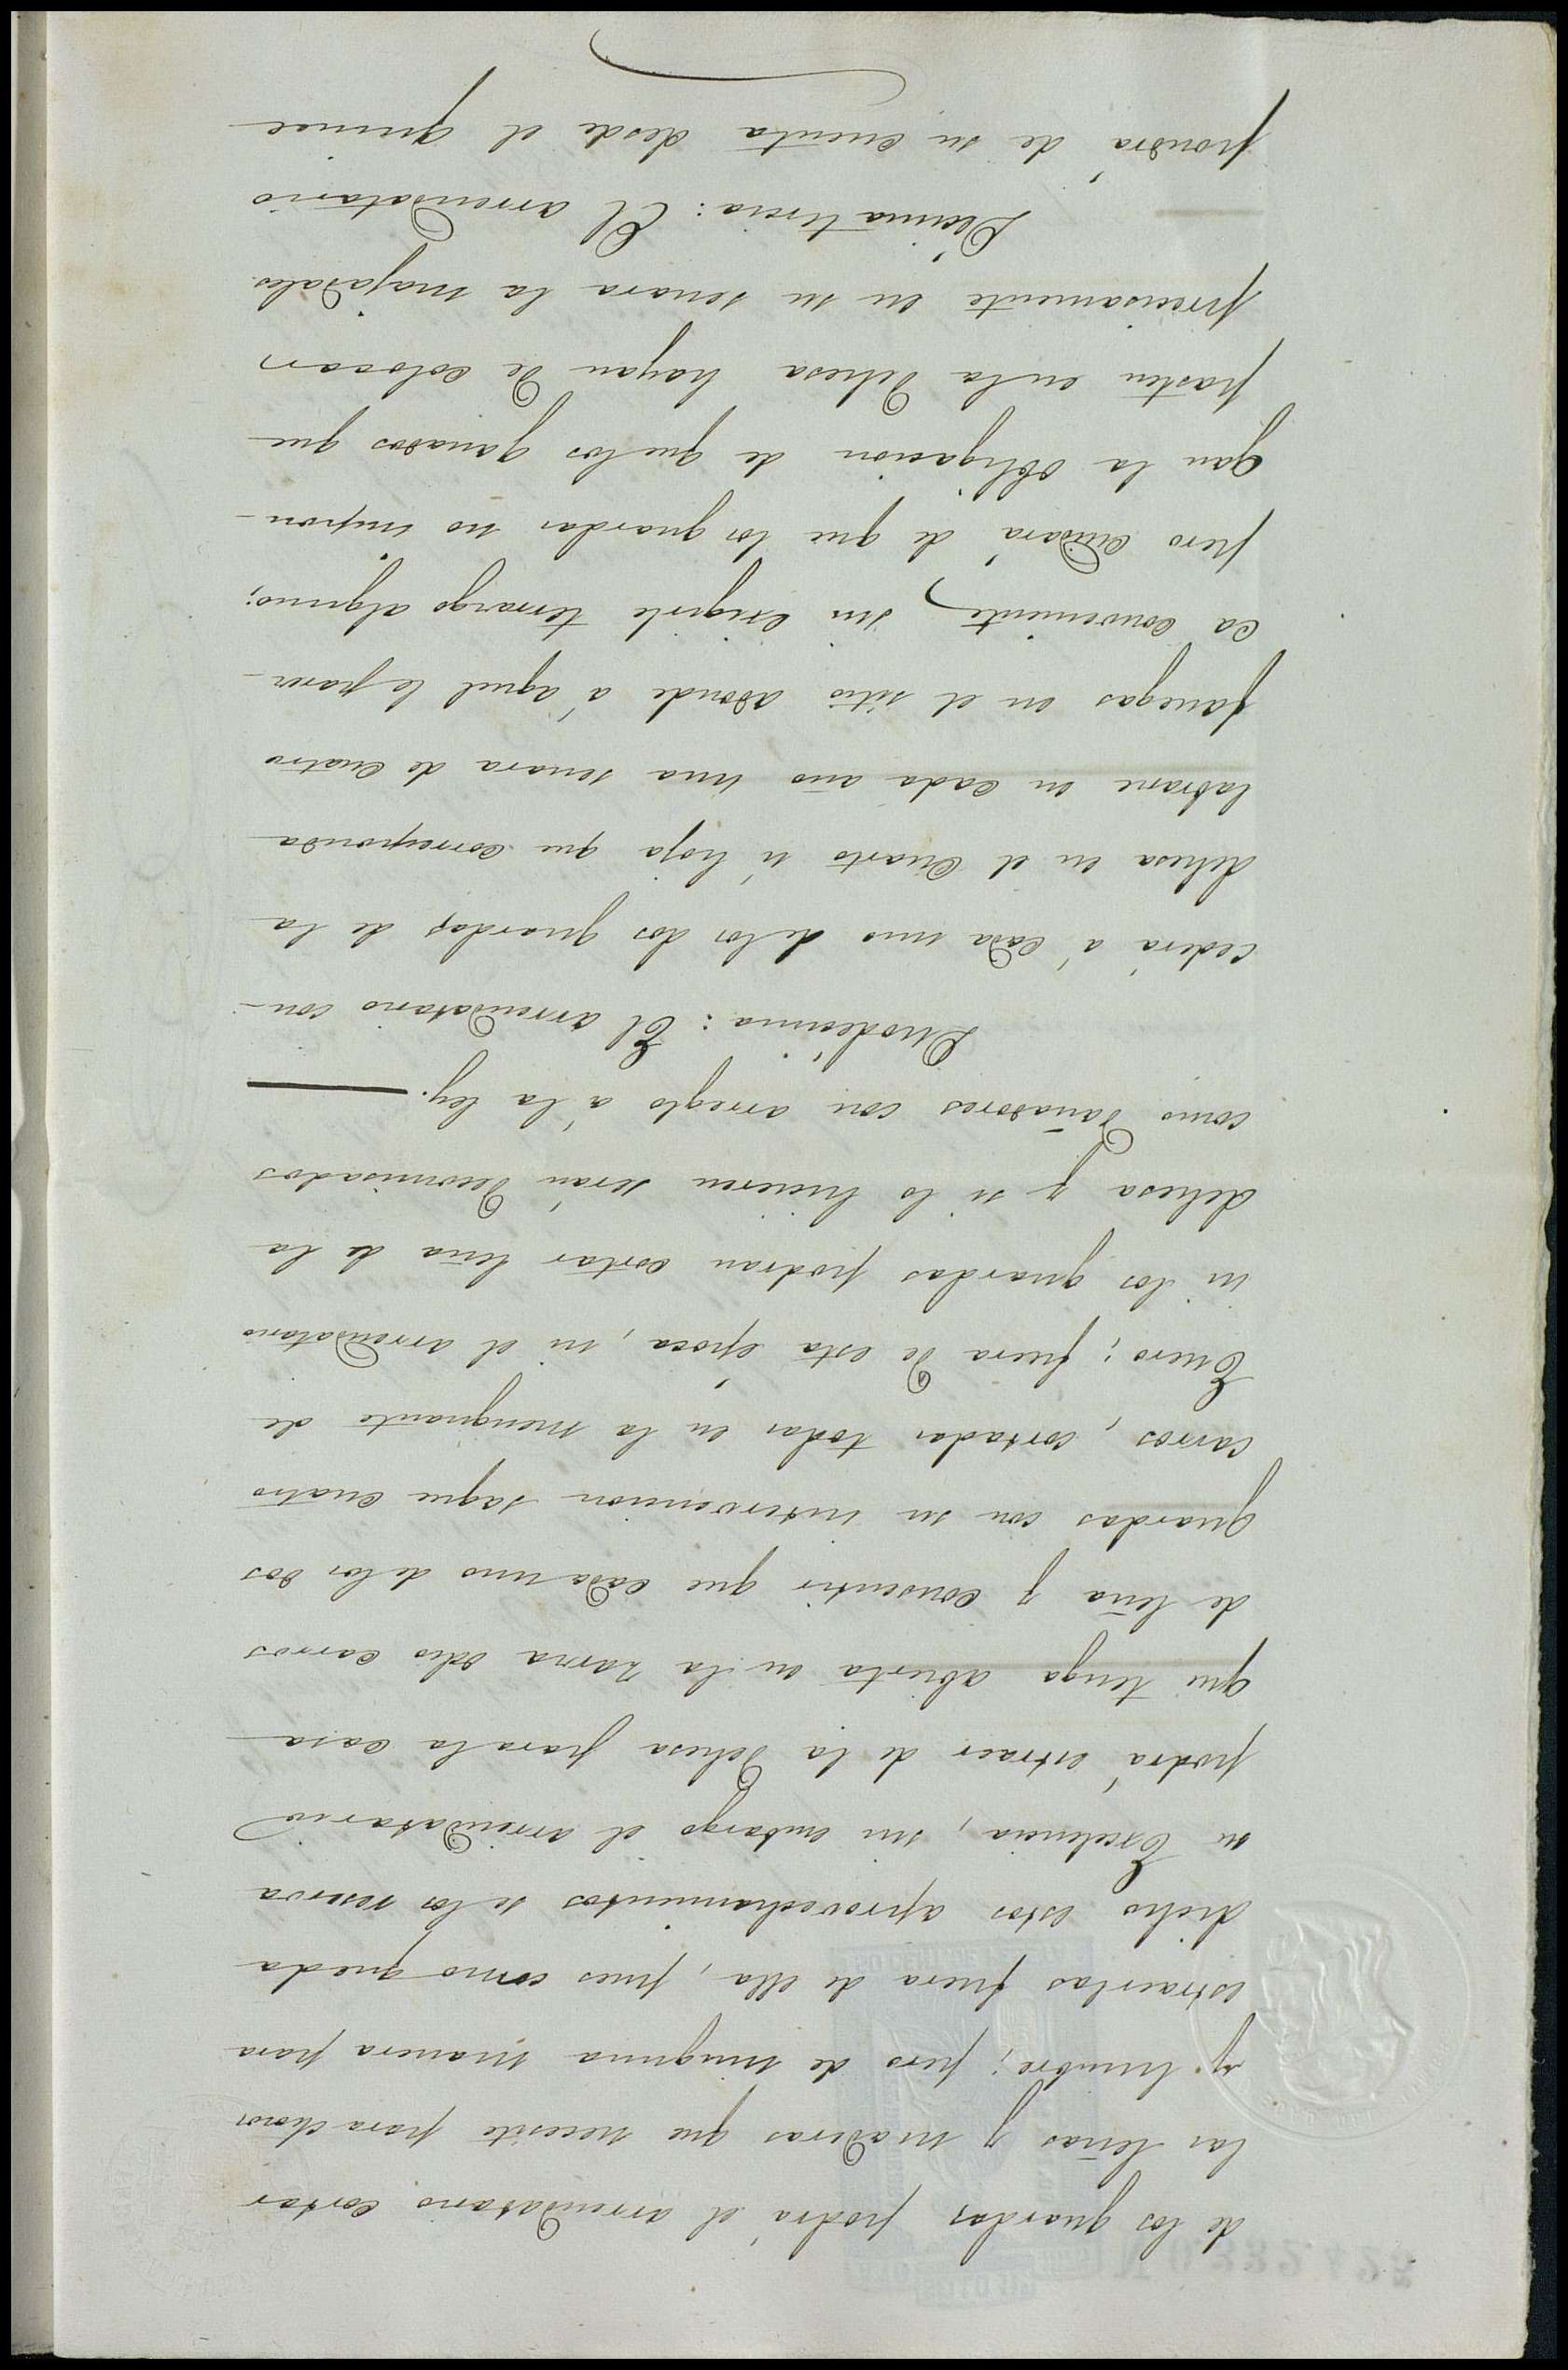 de los guardas podrá el arrendatario cortar
las leñas y maderas que necesite para chozos
y lumbre; pero de ninguna manera para
estraerlas fuera de ella, pues como queda
dicho estos aprovechamientos se los reserva
su Excelencia, sin embargo el arrendatario
podrá estraer de la dehesa para la casa
que tenga abierta en la Zarza ocho carros
de leña y consentir que cada uno de los dos
guardas con su intervencion saque cuatro
carros, cortadas todas en la menguante de
Enero; fuera de esta época, ni el arrendatario
ni los guardas podran cortar leña de la
dehesa y si lo hicieren serán decomisados
como dañadores con arreglo á la ley.
Duodécima: El arrendatario con-
cederá á cada uno de los dos guardas de la
dehesa en el cuarto ú hoja que corresponda
labrarse en cada año una senara de cuatro
fanegas en el sitio adonde á aquel le parez-
ca conveniente, sin exigirle terrazgo alguno;
pero cuidará de que los guardas no impon-
gan la obligacion de que los ganados que
pasten en la dehesa hayan de colocar
precisamente en su senara la majadales
Décima tercia: El arrendatario
pondrá de su cuenta desde el quince